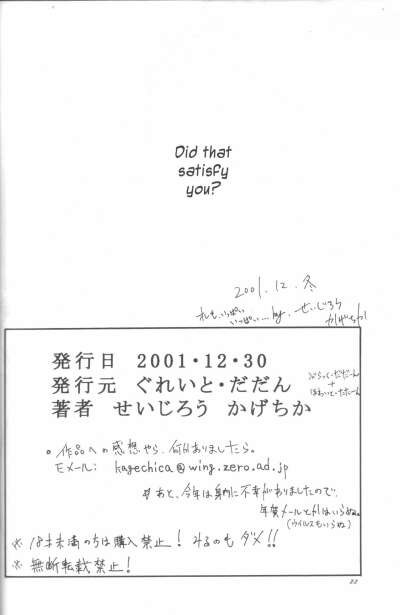 Did that
satisfy
you?
2001.12.冬
いっぱい…by.せいじろう
かげちか
発行日 2001・12・30
発行元 ぐれいと・だだん
著者 せいじろう かげちか
。作品への感想やら、何かありましたら。
Eメール: kagechica@wing.zero.ad.jp
#あと、今年は身内に不幸がありましたので、
年賀メールとかはいらぬ。
(ウイルスもいらぬ)
※ 18才未満の方は購入禁止! みるのもダメ!!
※ 無断転載禁止!
22